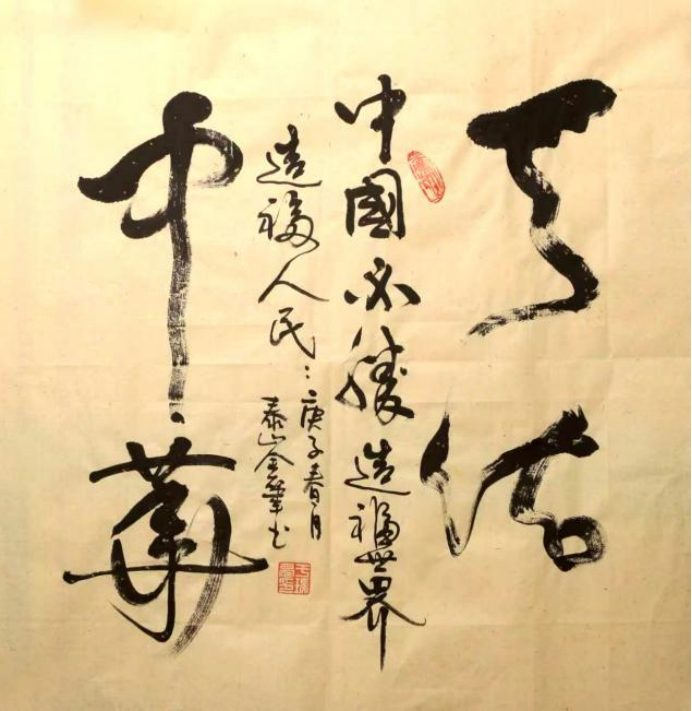 天佑
中國必勝造福世界
造福人民:庚子春月
泰山金華书
中華